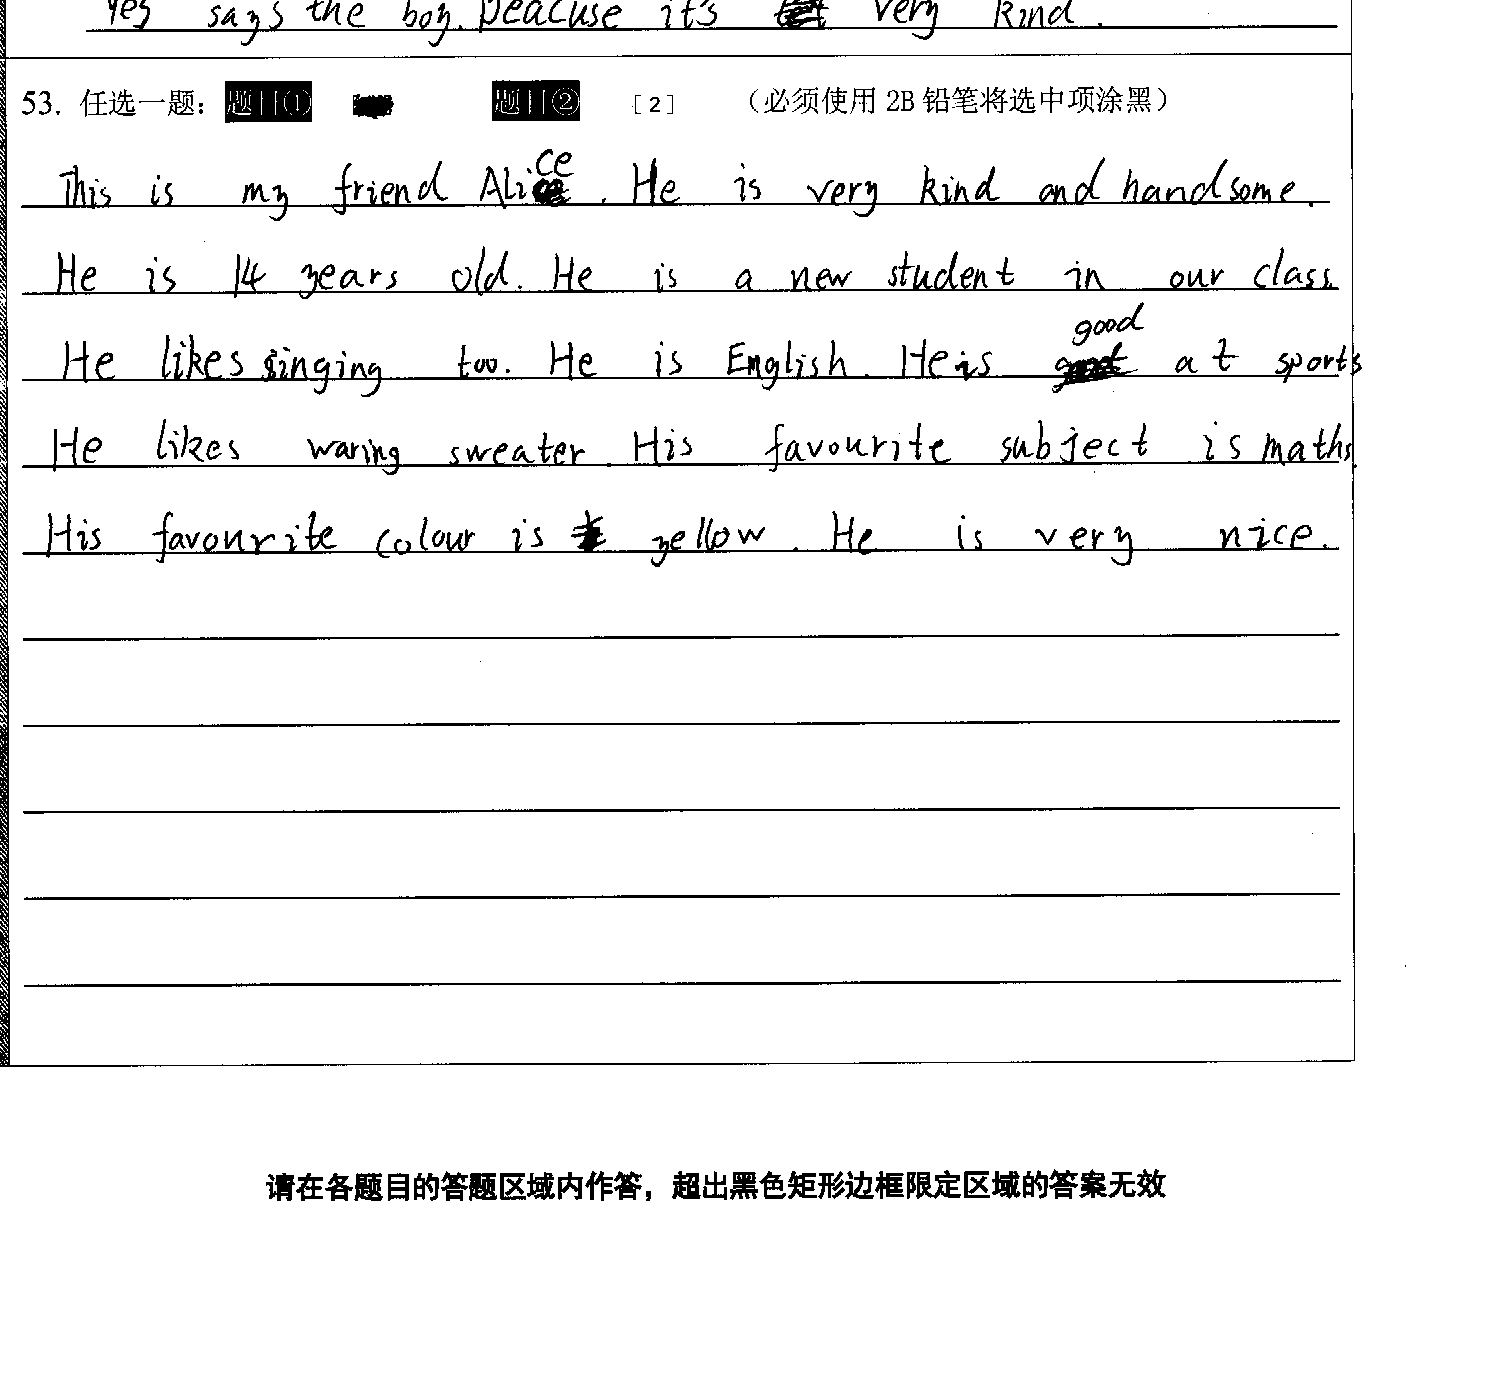 Yes says the boy. Beacuse it's very kind.
53. 任选一题: 题目① 题目② [2] (必须使用 2B 铅笔将选中项涂黑)
This is my friend Alice. He is very kind and handsome.
He is 14 years old. He is a new student in our class.
He likes singing too. He is English. He is good at sports
He likes waring sweater. His favourite subject is maths.
His favourite colour is yellow. He is very nice.
请在各题目的答题区域内作答，超出黑色矩形边框限定区域的答案无效